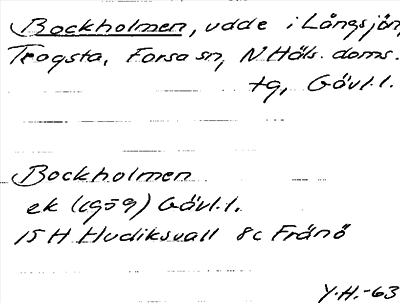 Bockholmen, udde i Långsjön,
Trogsta, Forsa sn, N Häls. doms.
tg, Gävl.l.
Bockholmen
ek (1959) Gävl.l.
15 H Hudiksvall 8c Fränö
Y.H.-63